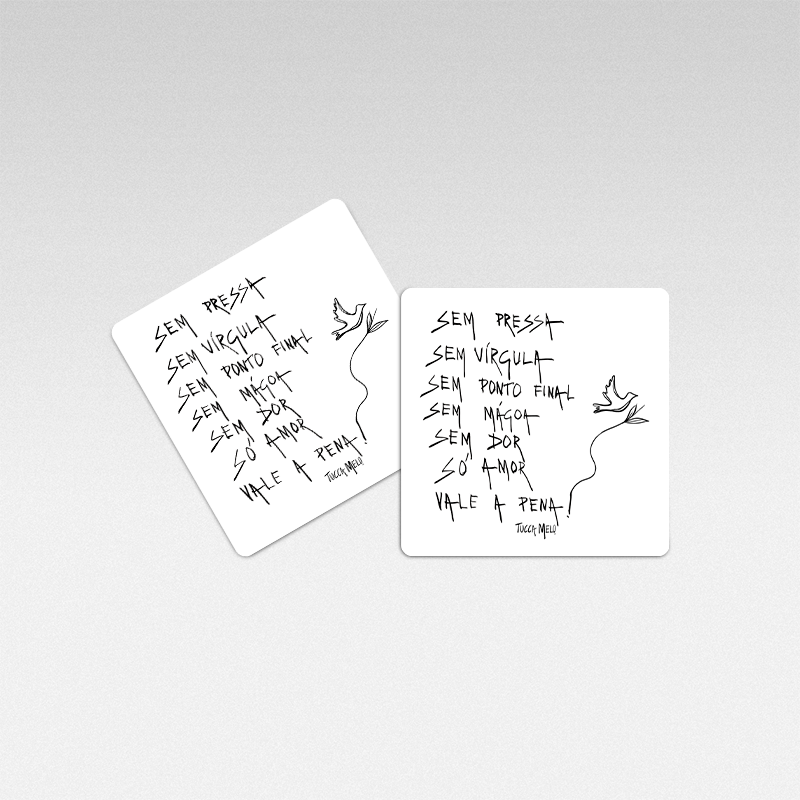 SEM PRESSA
SEM VÍRGULA
SEM PONTO FINAL
SEM MÁGOA
SEM DOR
SÓ AMOR
VALE A PENA
TUCCA MELO
SEM PRESSA
SEM VÍRGULA
SEM PONTO FINAL
SEM MÁGOA
SEM DOR
SÓ AMOR
VALE A PENA
TUCCA MELO